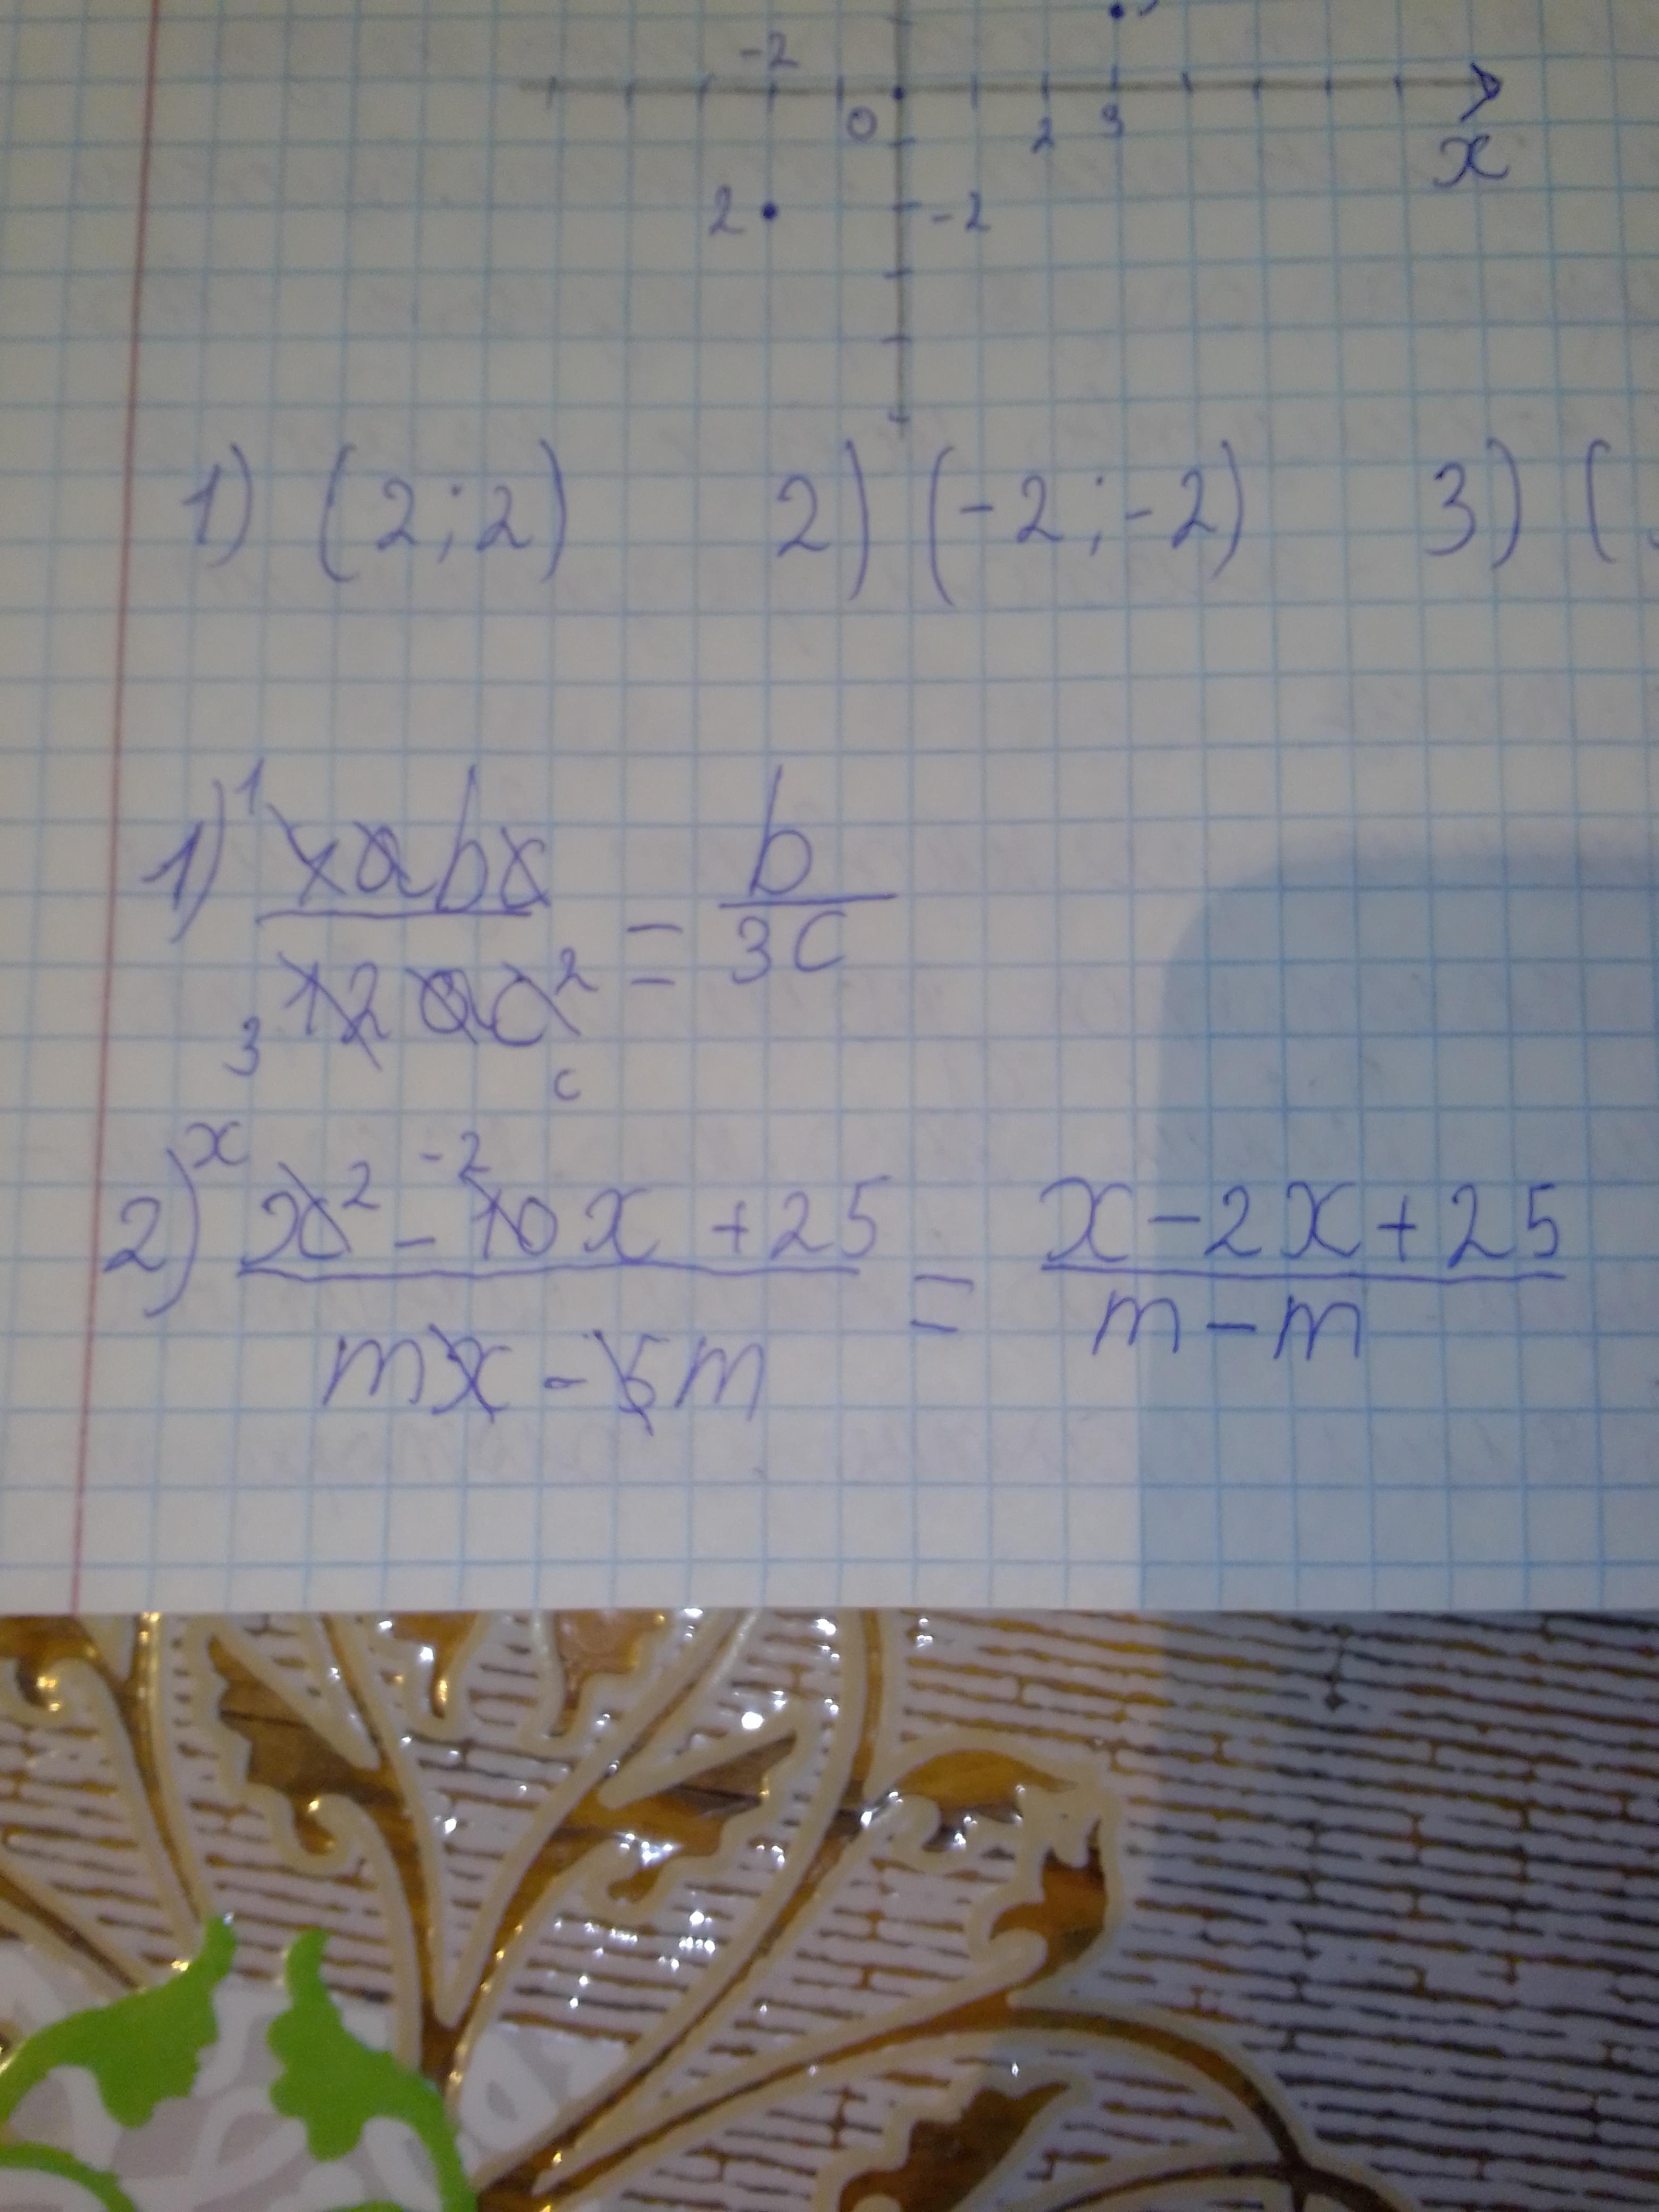 -2
0 2 3
x
2 -2
1) (2;2) 2) (-2;-2) 3) (
1) 1 4abc / 12ac² 3 c = b / 3c
2) x x² - -2 10x + 25 / mx - 5m = x - 2x + 25 / m - m